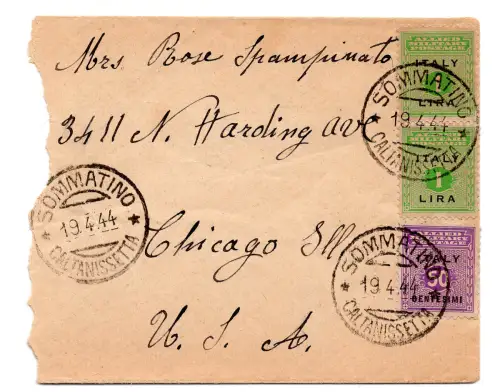 Mrs. Rose Spampinato
3411 N. Harding av.
Chicago Ill
U. S. A.
ALLIED MILITARY POSTAGE
ITALY
LIRA
SOMMATINO
19.4.44
CALTANISSETTA
ITALY
1
LIRA
SOMMATINO
19.4.44
CALTANISSETTA
ITALY
50
CENTESIMI
SOMMATINO
19.4.44
CALTANISSETTA